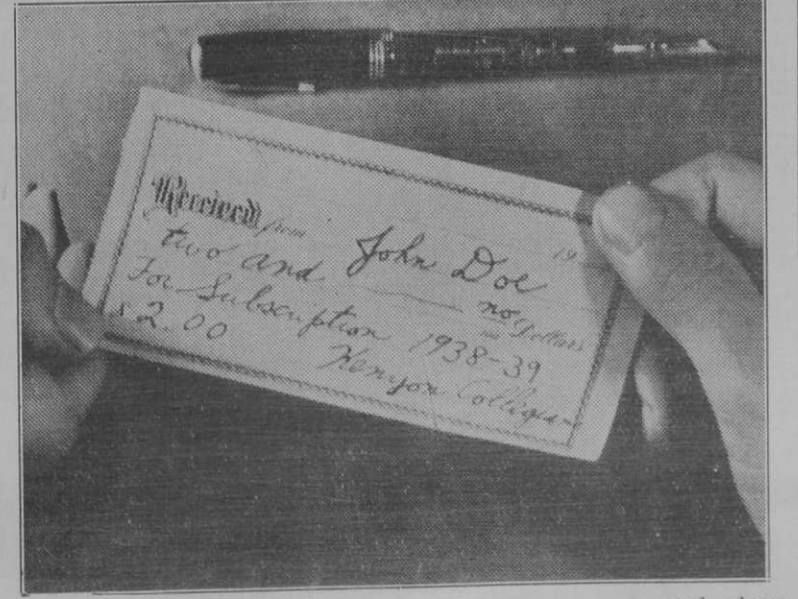 19
Received from John Doe
two and no Dollars
For Subscription 1938-39
$2.00 Kenyon Collegian